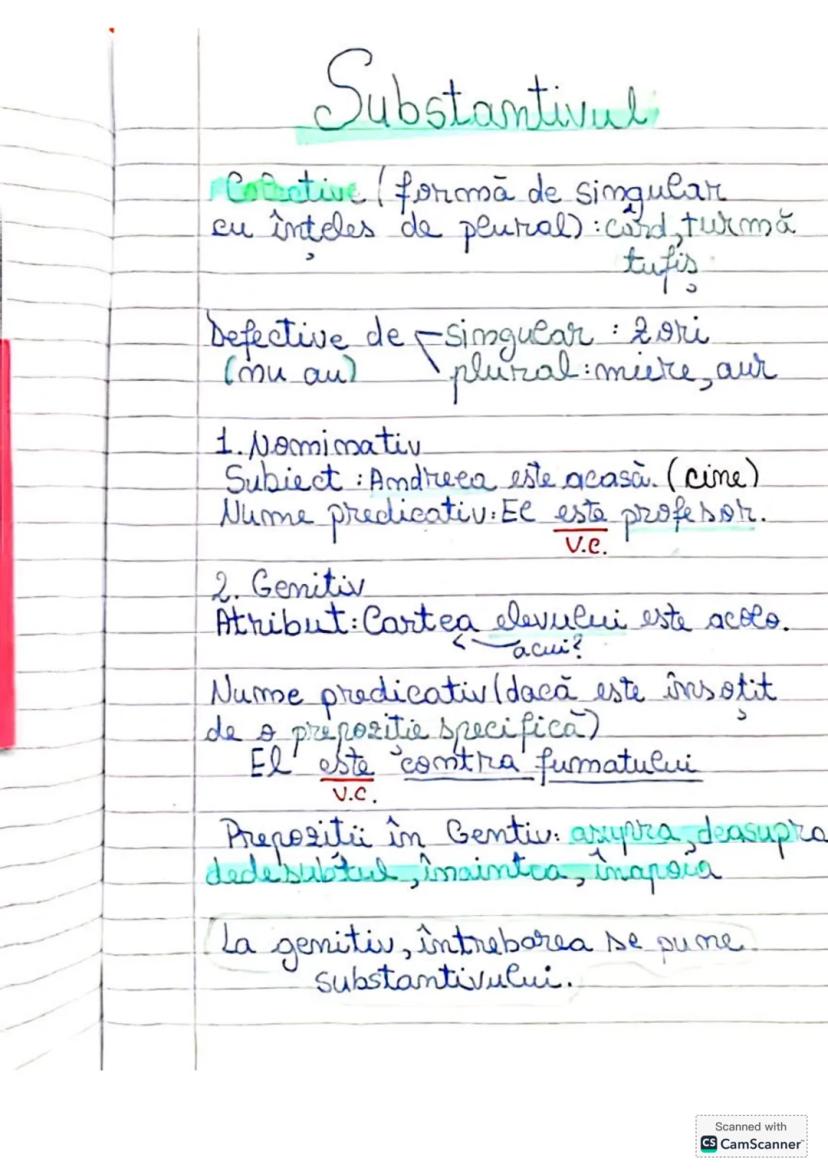 Substantivul
Colective (formă de singular
cu înțeles de plural) : cârd, turmă
tufiș
Defective de singular : zori
(nu au) plural : miere, aur
1. Nominativ
Subiect : Andreea este acasă. (cine)
Nume predicativ: El este profesor.
V.C.
2. Genitiv
Atribut: Cartea elevului este acolo.
acui?
Nume predicativ (dacă este însoțit
de o prepoziție specifică)
El este contra fumatului
V.C.
Prepoziții în Gentiv: asupra, deasupra
dedesubtul, înaintea, înapoia
La genitiv, întrebarea se pune
substantivului.
Scanned with
CS CamScanner